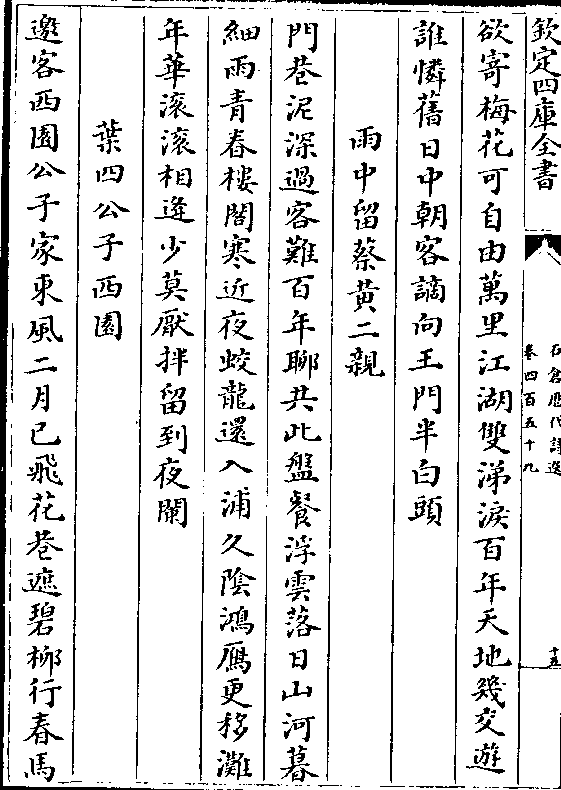 欽定四庫全書
石倉歷代詩選
卷四百五十九
十五
欲寄梅花可自由萬里江湖雙涕淚百年天地幾交遊
誰憐舊日中朝客謫向王門半白頭
雨中留蔡黃二親
門巷泥深過客難百年聊共此盤餐浮雲落日山河暮
細雨青春樓閣寒近夜蛟龍還入浦久陰鴻鴈更移灘
年華滚滚相逢少莫厭拌留到夜闌
葉四公子西園
邀客西園公子家東風二月已飛花巷遮碧栁行春馬